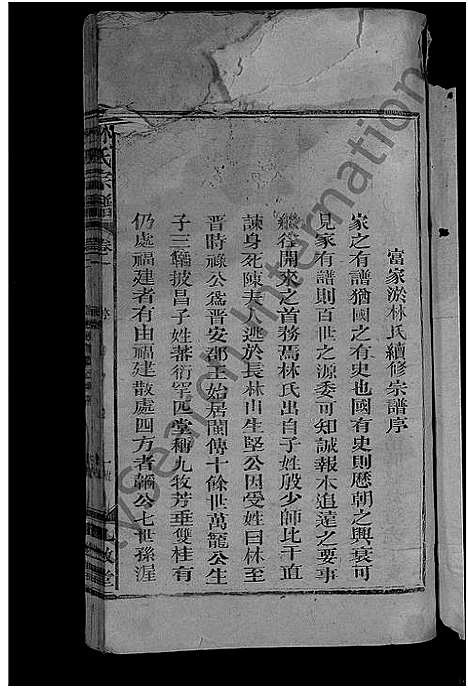 富家淤林氏續修宗譜序
家之有譜猶國之有史也國有史則歷朝之興衰可
見家有譜則百世之源委可知誠報本追遠之要事
繼往開來之首務焉林氏出自子姓殷少師比干直
諫身死陳夫人逃於長林山生堅公因受姓曰林至
晉時祿公為晉安郡王始居閩傳十餘世萬寵公生
子三韜披昌子姓蕃衍罕匹堂稱九牧芳垂雙桂有
仍處福建者有由福建散處四方者韜公七世孫渥
林氏宗譜 卷一 序